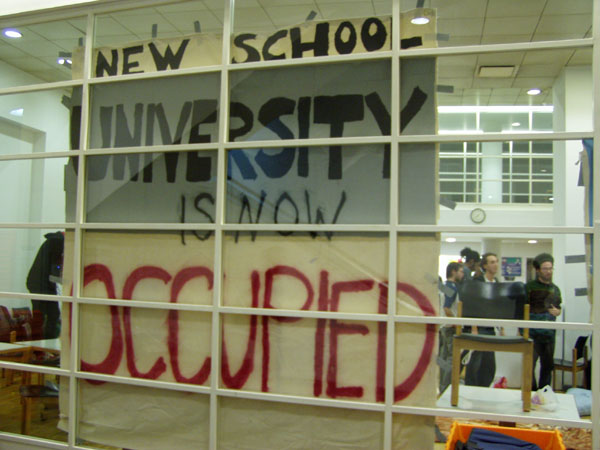 NEW SCHOOL
UNIVERSITY
IS NOW
OCCUPIED